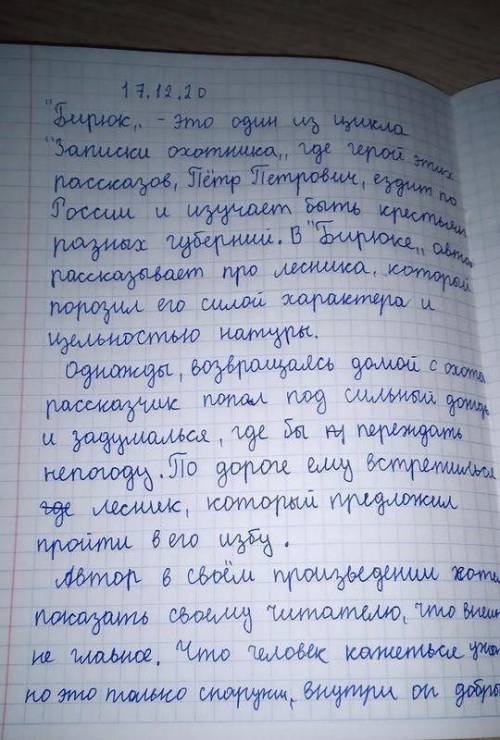 17.12.20
"Бирюк„ - это один из цикла
"Записки охотника„ где герой этих
рассказов, Пётр Петрович, ездит по
России и изучает быть крестьян
разных губерний. В "Бирюке„ автор
рассказывает про лесника, который
порозил его силой характера и
щельностью натуры.
Однажды, возвращаясь домой с охоты
рассказчик попал под сильный дождь
и задумалься, где бы переждать
непогоду. По дороге ему встретилься
лесник, который предложил
пройти в его избу.
Автор в своём произведении хотел
показать своему читателю, что
не главное. Что человек кажеться
но это только снаружи, внутри он добры